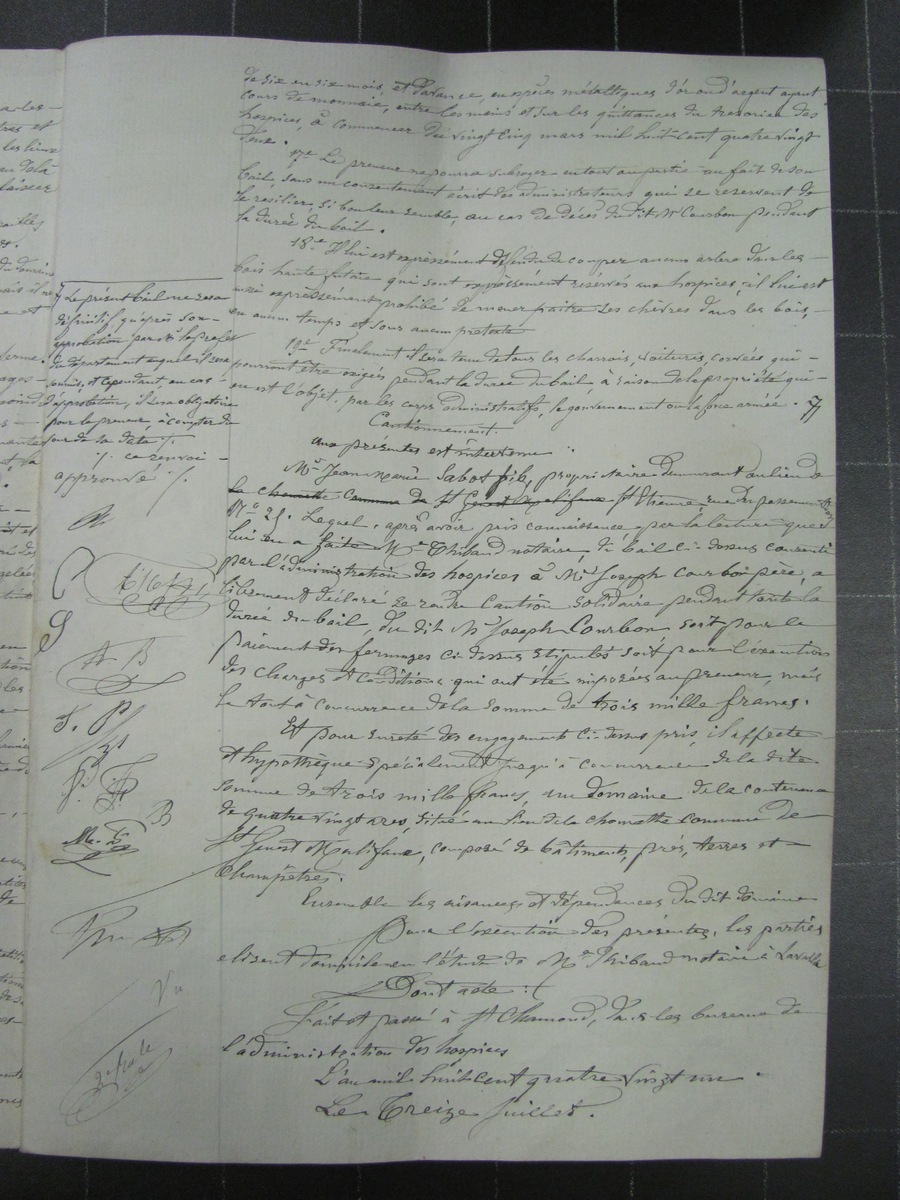 de six en six mois, et d'avance, en espèces métalliques d'or ou d'argent ayant
cours de monnaie, entre les mains et sur les quittances du trésorier des
hospices, à commencer du vingt cinq mars mil huit cent quatre vingt
deux.
17e Le preneur ne pourra subroger en tout ou partie au fait de son
bail, sans un consentement écrit des administrateurs, qui se reservent de
le résilier, si bon leur semble, au cas de décès du dit Mr Courbon pendant
la durée du bail.
18e Il lui est expressément défendu de couper aucuns arbres dans les
bois haute futaie qui sont expressément réservés aux hospices, il lui est
aussi expressément prohibé de mener paître des chèvres dans les bois,
en aucun temps et sous aucun prétexte
19e Finalement il sera tenu de tous les charrois, voitures, corvées qui
pourront être exigés pendant la durée du bail, à raison de la propriété qui
en est l'objet, par les corps administratifs, le gouvernement ou la force armée.
Cautionnement.
aux présentes est intervenu
Mr Jean Marie Sabot fils, propriétaire demeurant au lieu de
la chomette Commune de St Genest Malifaux St Etienne, rue
No 21. Lequel, après avoir pris connaissance par la lecture que
lui en a faite Me Thibaud notaire, du bail ci-dessus consenti
par l'administration des hospices à Mr Joseph Courbon père, a
librement déclaré se rendre Caution Solidaire pendant toute la
durée du bail, du dit Mr Joseph Courbon soit pour le
paiement des fermages ci-dessus stipulés soit pour l'exécution
des charges et conditions qui ont été imposées au preneur, mais
le tout à concurrence de la somme de trois mille francs.
Et pour sureté des engagements ci-dessus pris, il affecte
et hypothèque spécialement jusqu'à concurrence de la dite
somme de trois mille francs, un domaine de la contenance
de quatre vingt ares, situé au lieu de la chomette commune de
St Genest Malifaux, composé de bâtiments, prés, terres et
Champêtres.
Ensemble les aisances et dépendances du dit domaine
Pour l'exécution des présentes, les parties
elisent domicile en l'étude de Me Thibaud notaire à Lavalla
Dont acte :
Fait et passé à St Chamond, dans les bureaux de
l'administration des hospices
L'an mil huit cent quatre vingt un.
Le Treize juillet.
Le présent bail ne sera
définitif, qu'après son
approbation par Mr le préfet
du département auquel il sera
soumis, et cependant, en cas
d'approbation, il sera obligatoire
pour le preneur, à compter du
jour de sa date
ce renvoi
approuvé
A B
J. P
B
Vu